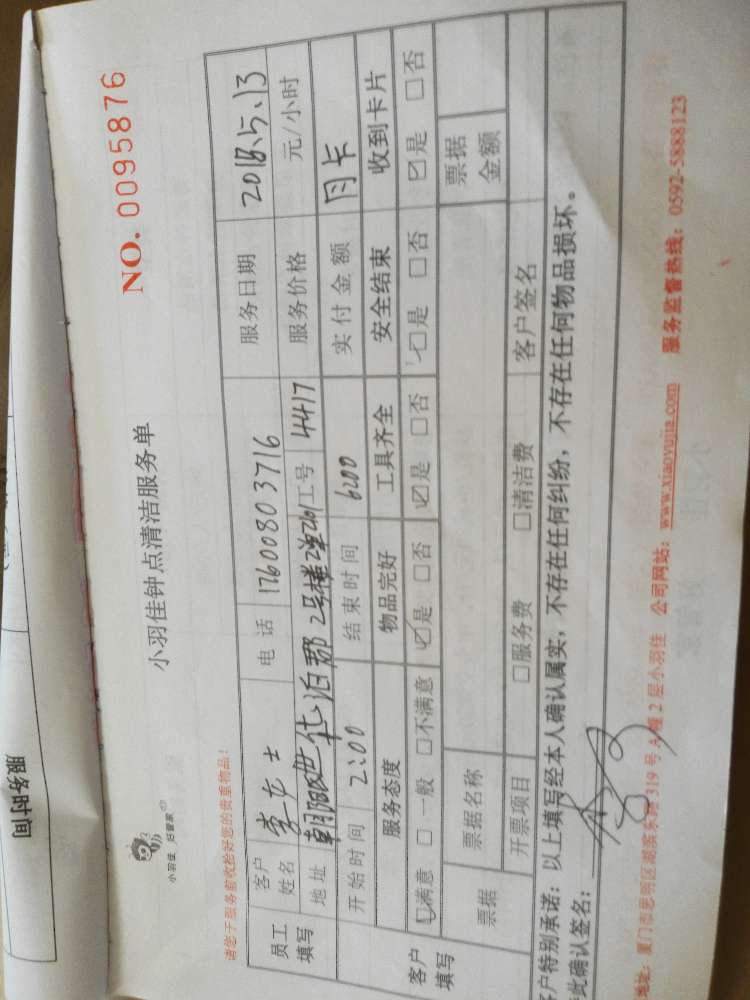 服务时间
小羽佳 好管家
小羽佳钟点清洁服务单
NO. 0095876
请您于服务前收拾好您的贵重物品!
员工填写 客户姓名 李女士 电话 17600803716 服务日期 2018.5.13
地址 朝阳 世华泊郡2号楼 工号 4417 服务价格 元/小时
开始时间 2:00 结束时间 6:00 实付金额 月卡
客户填写 服务态度 物品完好 工具齐全 安全结束 收到卡片
☑满意 □一般 □不满意 ☑是 □否 ☑是 □否 ☑是 □否 ☑是 □否
票据 票据名称 票据金额
开票项目 □服务费 □清洁费 客户签名
客户特别承诺:以上填写经本人确认属实,不存在任何纠纷,不存在任何物品损坏。
此确认签名:
地址:厦门市思明区湖滨东路319号A幢2层小羽佳 公司网站:www.xiaoyujia.com 服务监督热线:0592-5888123